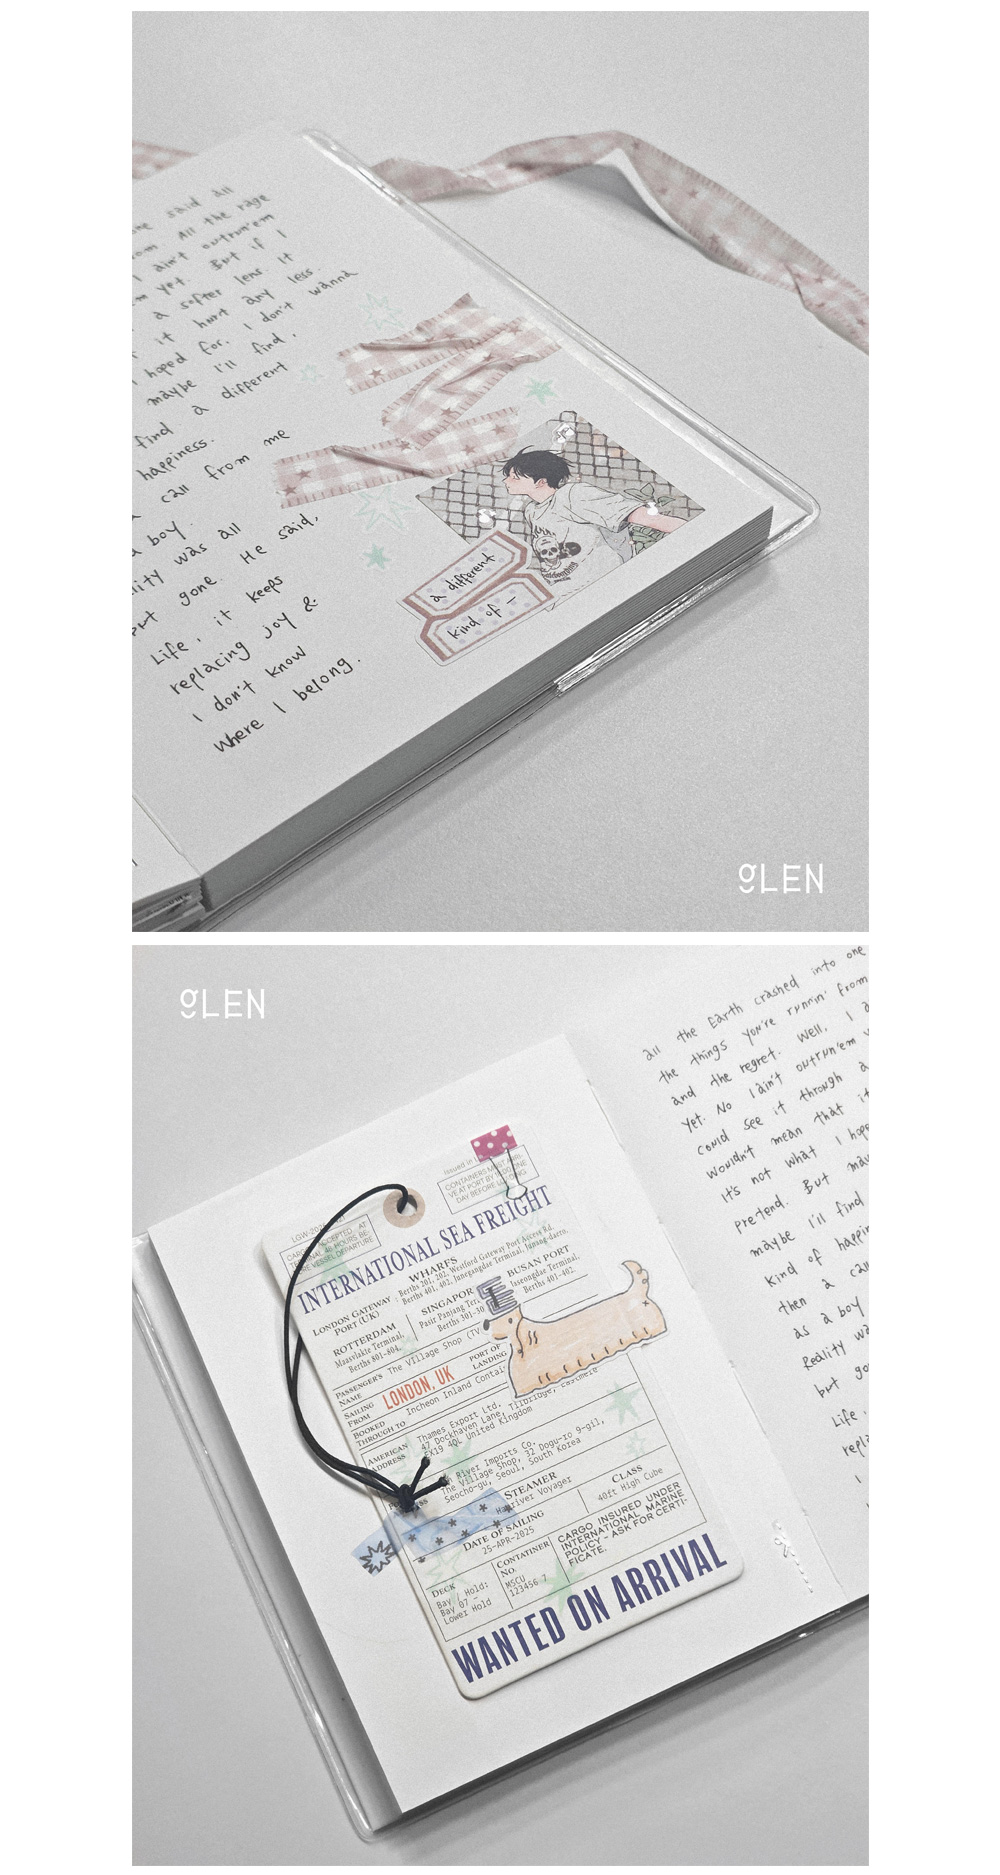 said all
All the rage
I ain't outrun'em
yet. But if I
a softer lens. It
it hurt any less.
I hoped for. I don't wanna
maybe I'll find,
find a different
happiness.
a call from me
a boy.
was all
but gone. He said,
Life, it keeps
replacing joy &
I don't know
where I belong.
a different
kind of –
gLEN
gLEN
all the Earth crashed into one
the things you're runnin' from
and the regret. Well, I a
Yet. No I ain't outrun'em
could see it through a
wouldn't mean that it
It's not what I hope
pretend. But may
maybe I'll find
kind of happin
then a call
as a boy
Reality wa
but go
Life.
repla
I
Issued in
CONTAINERS MUST ARRI-
VE AT PORT BY 9:00 ONE
DAY BEFORE LOADING
CARGO ACCEPTED AT
TERMINAL 48 HOURS BE-
FORE VESSEL DEPARTURE
INTERNATIONAL SEA FREIGHT
WHARFS
LONDON GATEWAY
PORT (UK)
Berths 201, 202, Westford Gateway Port Access Rd.
Berths 401, 402, Junegangdae Terminal, Junang-daero.
ROTTERDAM
Maasvlakte Terminal,
Berths 801-804.
SINGAPOR
Pasir Panjang Ter
Berths 301-30
BUSAN PORT
Isseongdae Terminal,
Berths 401-402.
PASSENGER'S
NAME
The Village Shop (TV
SAILING
FROM
LONDON, UK
PORT OF
LANDING
BOOKED
THROUGH TO
Incheon Inland Contai
AMERICAN
ADDRESS
Thames Export Ltd.
47 Dockhaven Lane, Tilbridge, Eastmere
EX19 4QL United Kingdom
River Imports Co.
The Village Shop, 32 Dogu-ro 9-gil,
Seocho-gu, Seoul, South Korea
STEAMER
Hanriver Voyager
CLASS
40ft High Cube
DATE OF SAILING
25-APR-2025
DECK
Bay , Hold:
Bay 07 –
Lower Hold
CONTATINER
No.
MSCU
123456-7
CARGO INSURED UNDER
INTERNATIONAL MARINE
POLICY – ASK FOR CERTI-
FICATE.
WANTED ON ARRIVAL